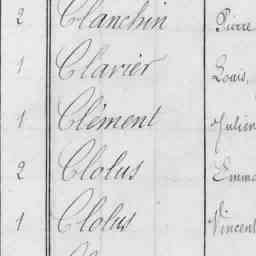 2 Clanchin Pierre
1 Clavier Louis,
1 Clément Julien
2 Clolus Emma
1 Clolus Vincent